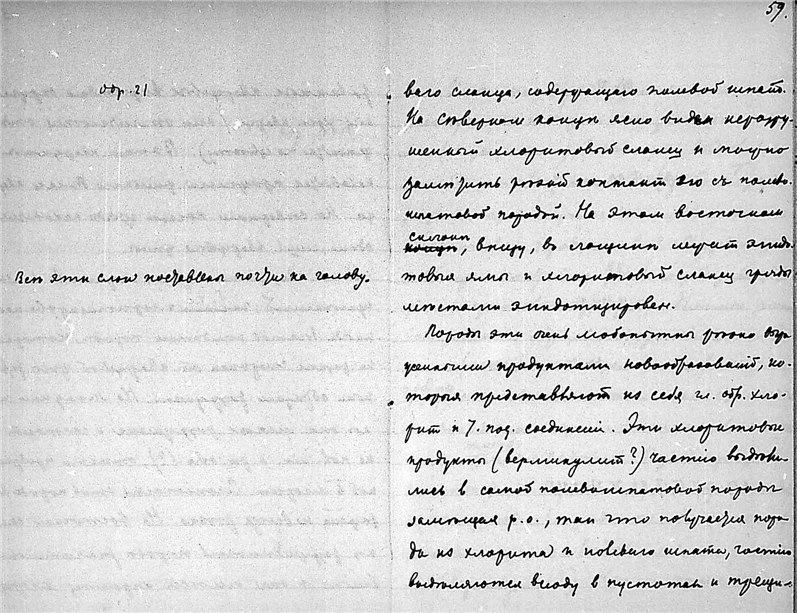 59.
Обр. 21
Все эти слои поставлены почти на голову.
ваго сланца, содержащего полевой шпат.
На северном конце ясно виден неразру-
шенный хлоритовый сланец и можно
заметить резкий контакт его съ полево-
шпатовой породой. На этом восточном
склоне, внизу, въ лощине лежит эпидо-
товыя ямы и хлоритовый сланец
местами эпидотизирован.
Породы эти очень любопытны резко выра-
женными продуктами новообразований, ко-
торыя представляют из себя гл. обр. хло-
рит и т. под. соединений. Эти хлоритовые
продукты (вермикулит?) частiю выдели-
лись в самой полевошпатовой породе
р. о., так что получается поро-
да из хлорита и полеваго шпата, частiю
выделяются всюду в пустотах и трещи-